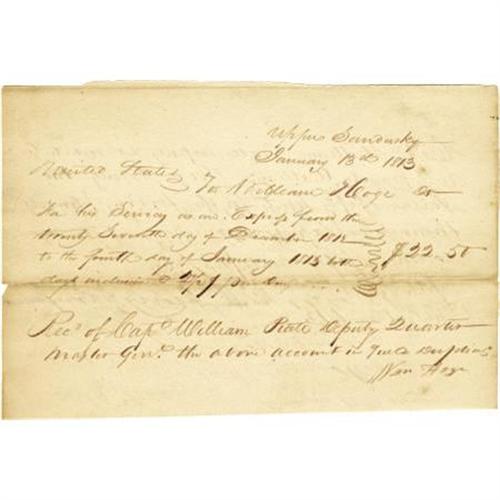 Upper Sandusky
January 13th 1813
United States To William Hoge Dr
For his Services as an Express from the
twenty Seventh day of December 1812
to the fourth day of January 1813 both $22.50
days inclusive
Recd of Capt William Deputy Quarter
Master Genl the above account in full
Wm Hoge